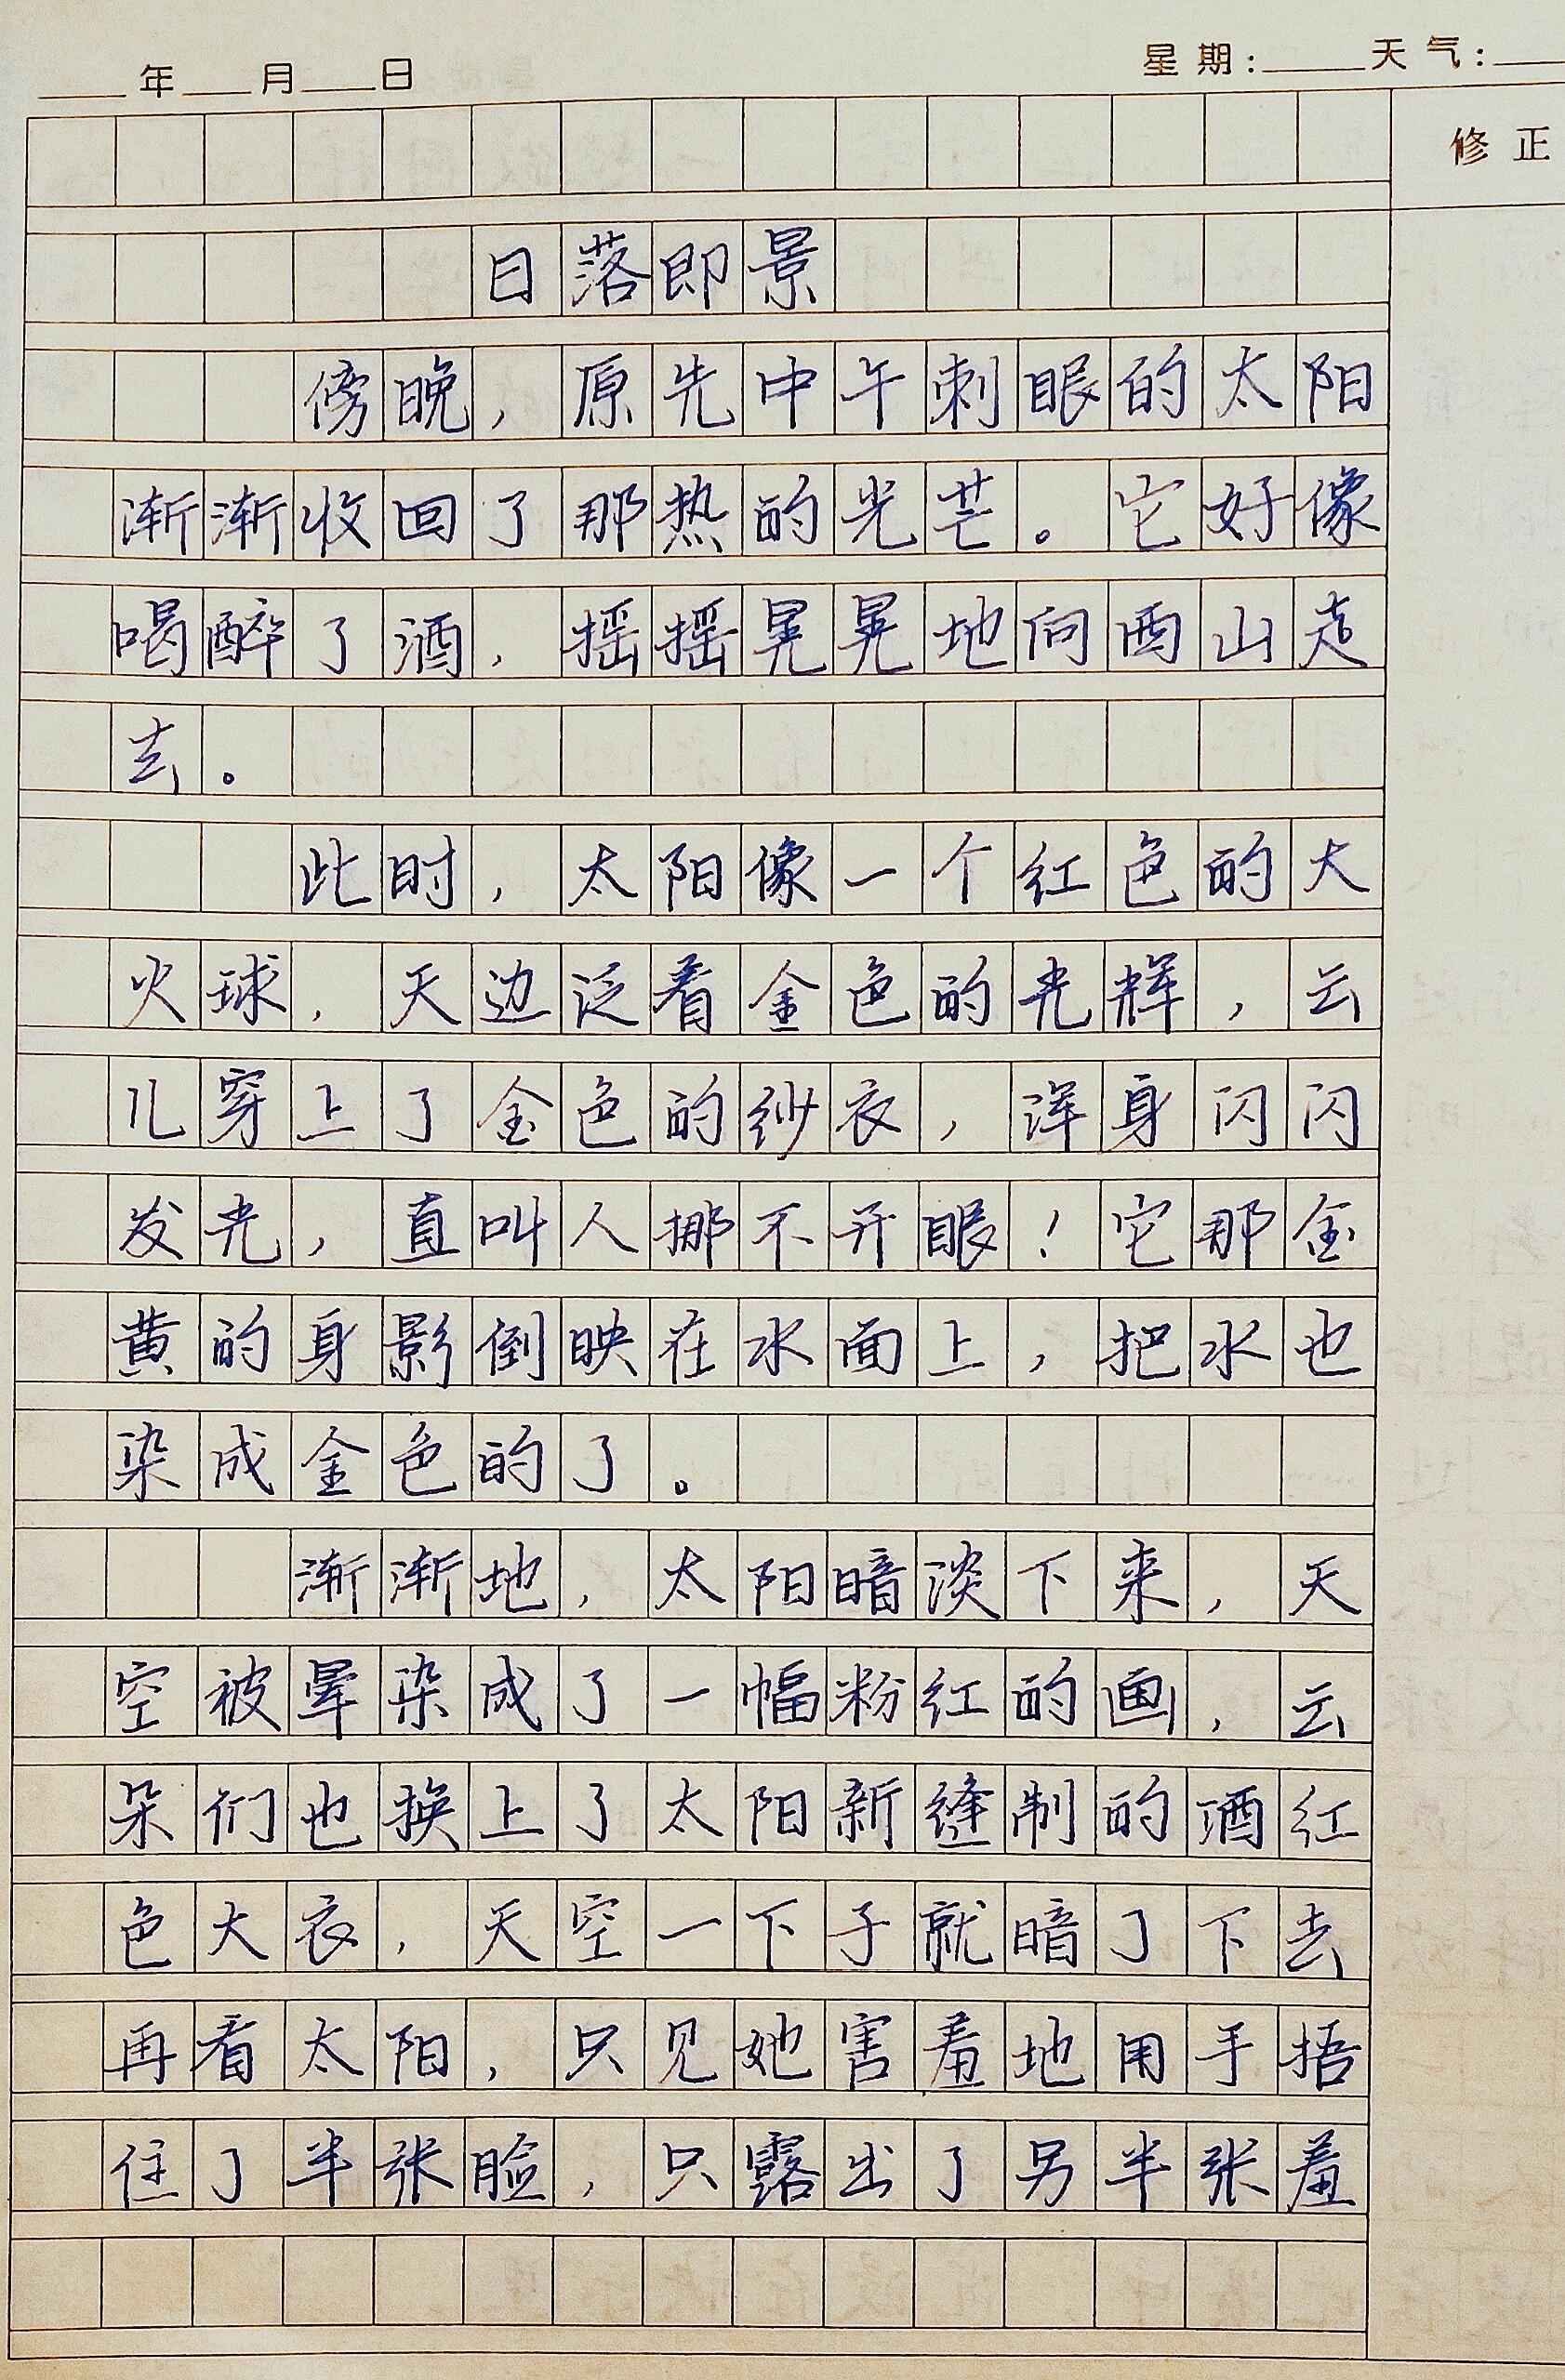 ___年___月___日 星期:____天气:__
修正
日落即景
傍晚，原先中午刺眼的太阳
渐渐收回了那热的光芒。它好像
喝醉了酒，摇摇晃晃地向西山走
去。
此时，太阳像一个红色的大
火球，天边泛着金色的光辉，云
儿穿上了金色的纱衣，浑身闪闪
发光，直叫人挪不开眼！它那金
黄的身影倒映在水面上，把水也
染成金色的了。
渐渐地，太阳暗淡下来，天
空被晕染成了一幅粉红的画，云
朵们也换上了太阳新缝制的酒红
色大衣，天空一下子就暗了下去
再看太阳，只见她害羞地用手捂
住了半张脸，只露出了另半张羞